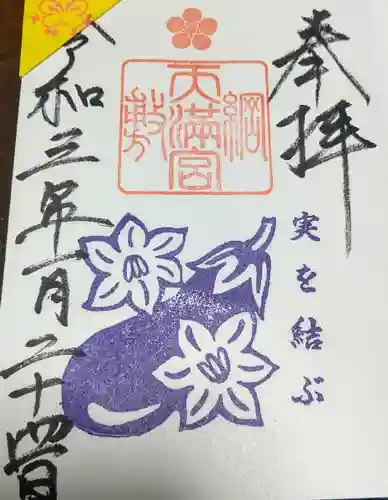 奉拝
綱敷天満宮
実を結ぶ
令和三年一月二十四日